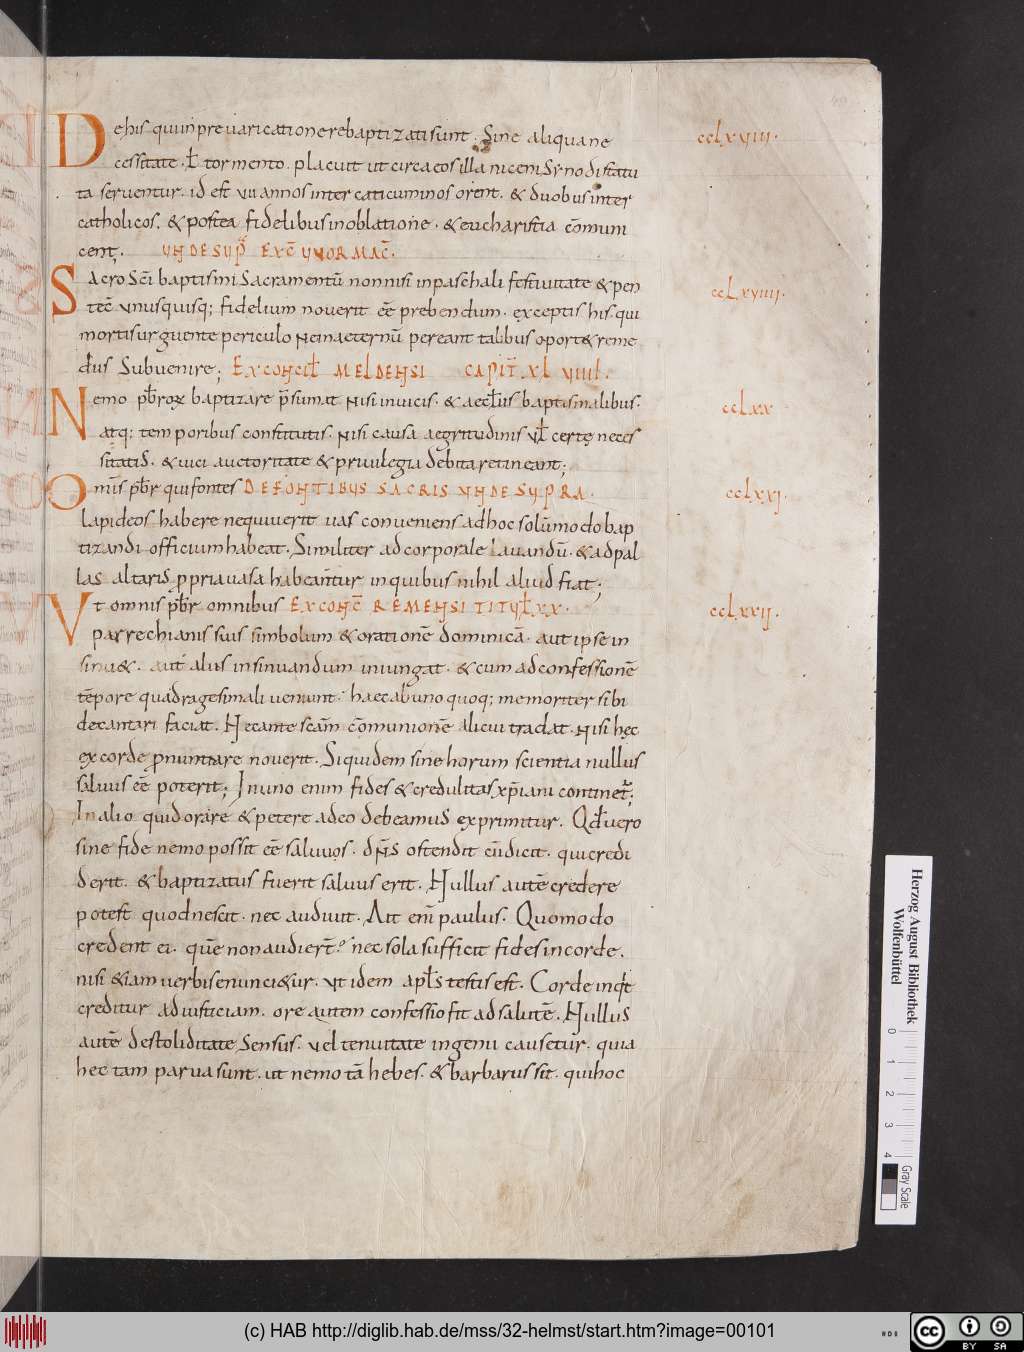 De his qui in prevaricatione rebaptizati sunt. Sine aliqua ne
cessitate. ł tormento. placuit ut circa eos illa niceni synodi statu
ta serventur. id est vii annos inter caticuminos orent. & duobus inter
catholicos. & postea fidelibus in oblatione. & eucharistia cōmuni
cent;
ccLxviii.
Sacro sc̄i baptismi Sacramentū non nisi in paschali festivitate & pen
tec̄ unusquisq; fidelium noverit eē prebendum. exceptis his. qui
mortis urguente periculo Ne in aeternū pereant talibus oport& reme
diis Subvenire; EX CONCIŁ MELDENSI CAPIT̄. XL VIIII.
ccLxviiii.
Nemo pb̄rorum baptizare p̄sumat Nisi in vicis. & aecłiis baptismalibus.
atq; temporibus constitutis. Nisi causa aegritudinis vł certe neces
sitatis. & vici auctoritate & privilegia debita retineant;
ccLxx
Omis pb̄r qui fontes DE FONTIBUS SACRIS UNDE SUPRA.
Lapideos habere nequiverit vas conveniens ad hoc solūmodo bap
tizandi officium habeat. Similiter ad corporale Lavandū. & ad pal
las altaris propria vasa habeantur in quibus nihil aliud fiat;
ccLxxi.
Vt omnis pb̄r omnibus EX CONC̄ REMENSI TITUŁ. XX.
parrechianis suis simbolum & orationē dominicā. aut ipse in
sinu&. aut aliis insinuandum iniungat. & cum ad confessionē
tēpore quadragesimali veniunt. haec ab uno quoq; memoriter sibi
decantari faciat. Nec ante scām cōmunionē alicui tradat. Nisi hęc
ex corde pronuntiare noverit. Siquidem sine horum scientia nullus
salvus eē poterit; In uno enim fides & credulitas xp̄iani continet̄;
In alio quid orare & petere a deo debeamus exprimitur. Qđ vero
sine fide nemo possit eē salvus. dn̄s ostendit cū dicit. qui credi
derit. & baptizatus fuerit salvus erit. Nullus autē credere
potest quod nescit. nec audivit. Ait eni paulus. Quomodo
credent ei. quē non audiert̄? nec sola sufficit fides in corde.
nisi &iam verbis enunci&ur. ut idem apłs testis est. Corde inqt
creditur ad iusticiam. ore autem confessio fit ad salutē. Nullus
autē de stoliditate Sensus. vel tenuitate ingenii causetur. quia
hec tam parva sunt. ut nemo tā hebes. & barbarus sit. qui hoc
ccLxxii.
Herzog August Bibliothek
Wolfenbüttel
0 1 2 3 4
Gray Scale
(c) HAB http://diglib.hab.de/mss/32-helmst/start.htm?image=00101
cc BY SA